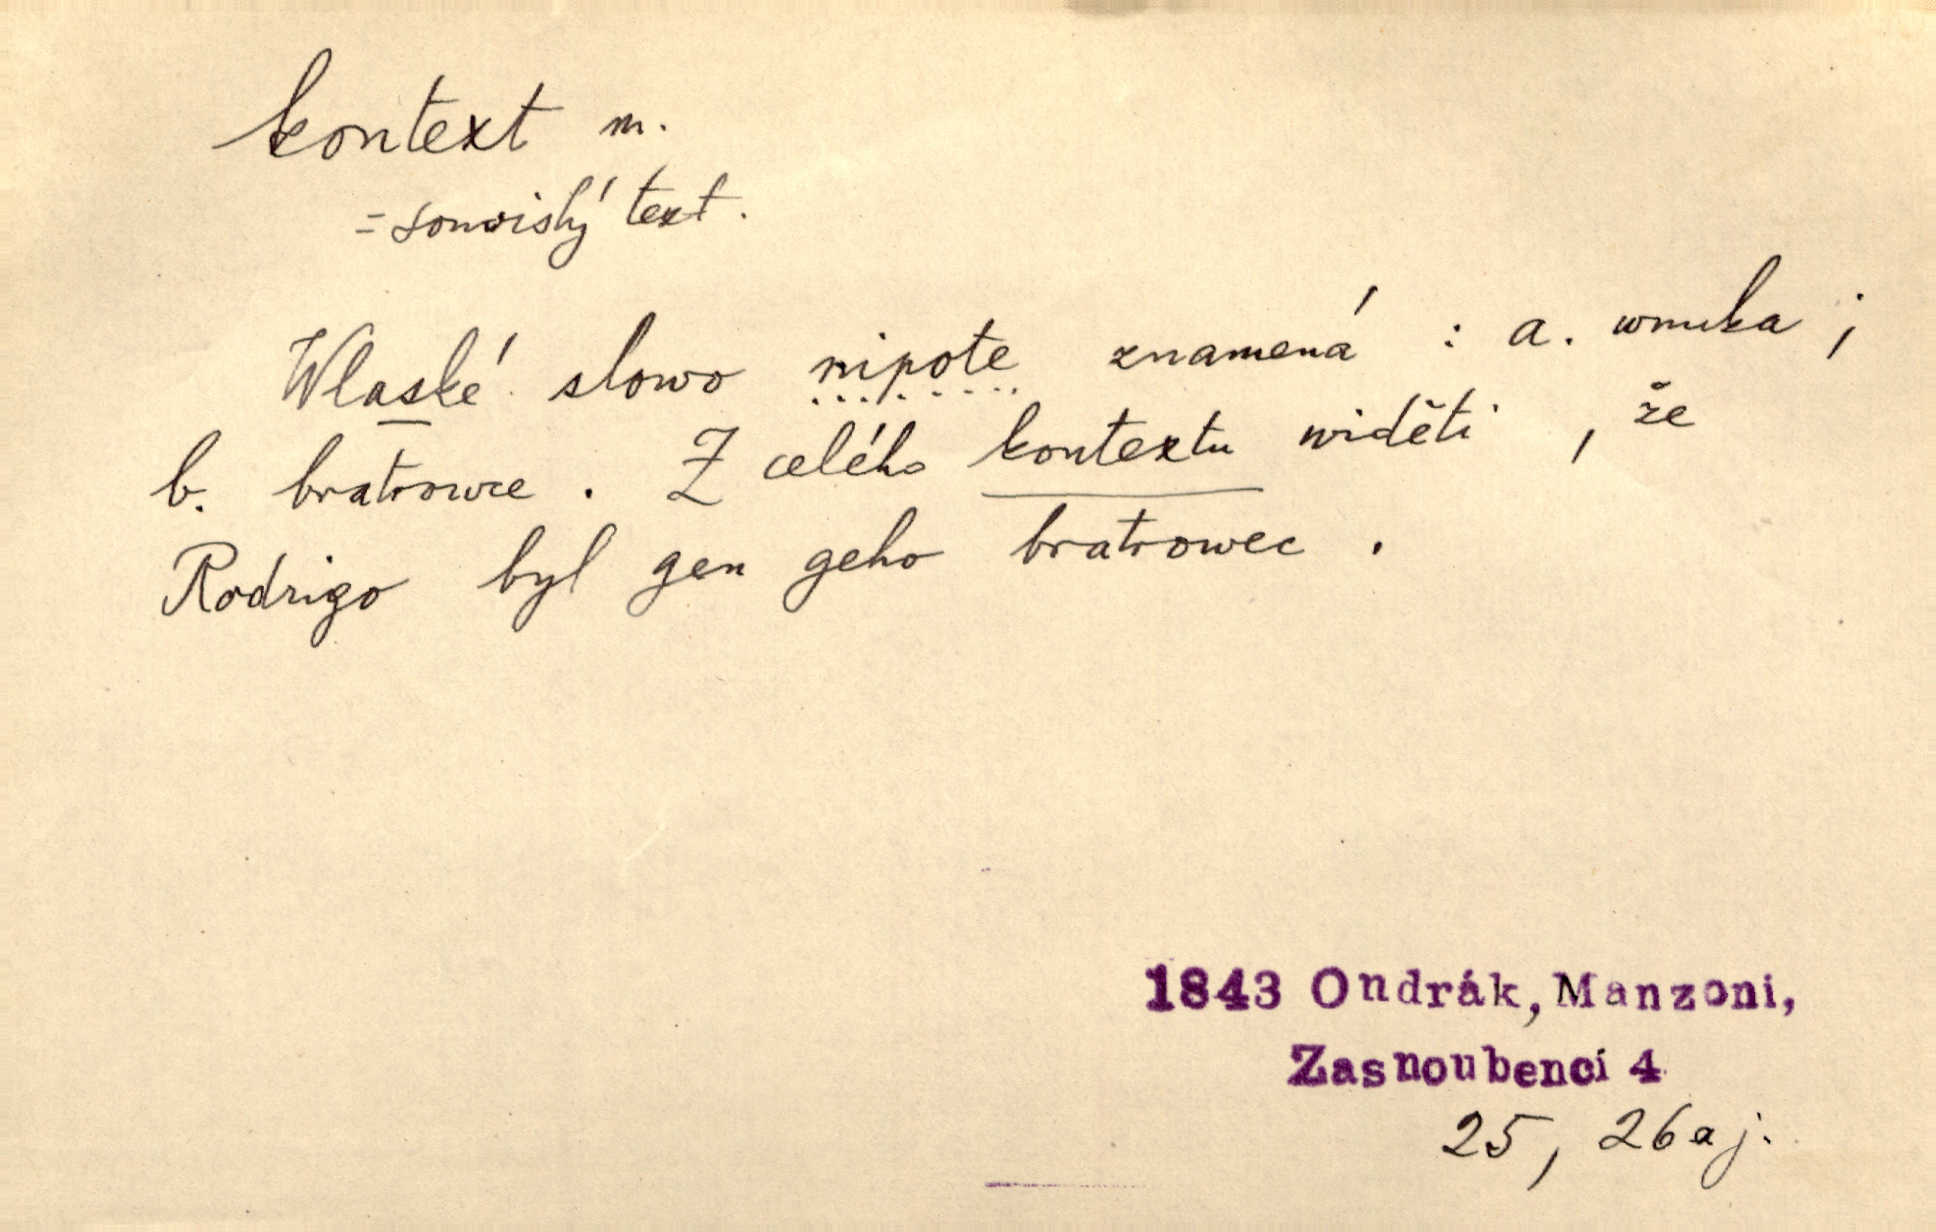 kontext m.
= souvislý text.
Wlaské slowo nipote znamená : a. wnuka ;
b. bratrowce . Z celého kontextu widěti , že
Rodrigo byl gen geho bratrowec .
1843 Ondrák, Manzoni,
Zasnoubenci 4
25, 26 a j.